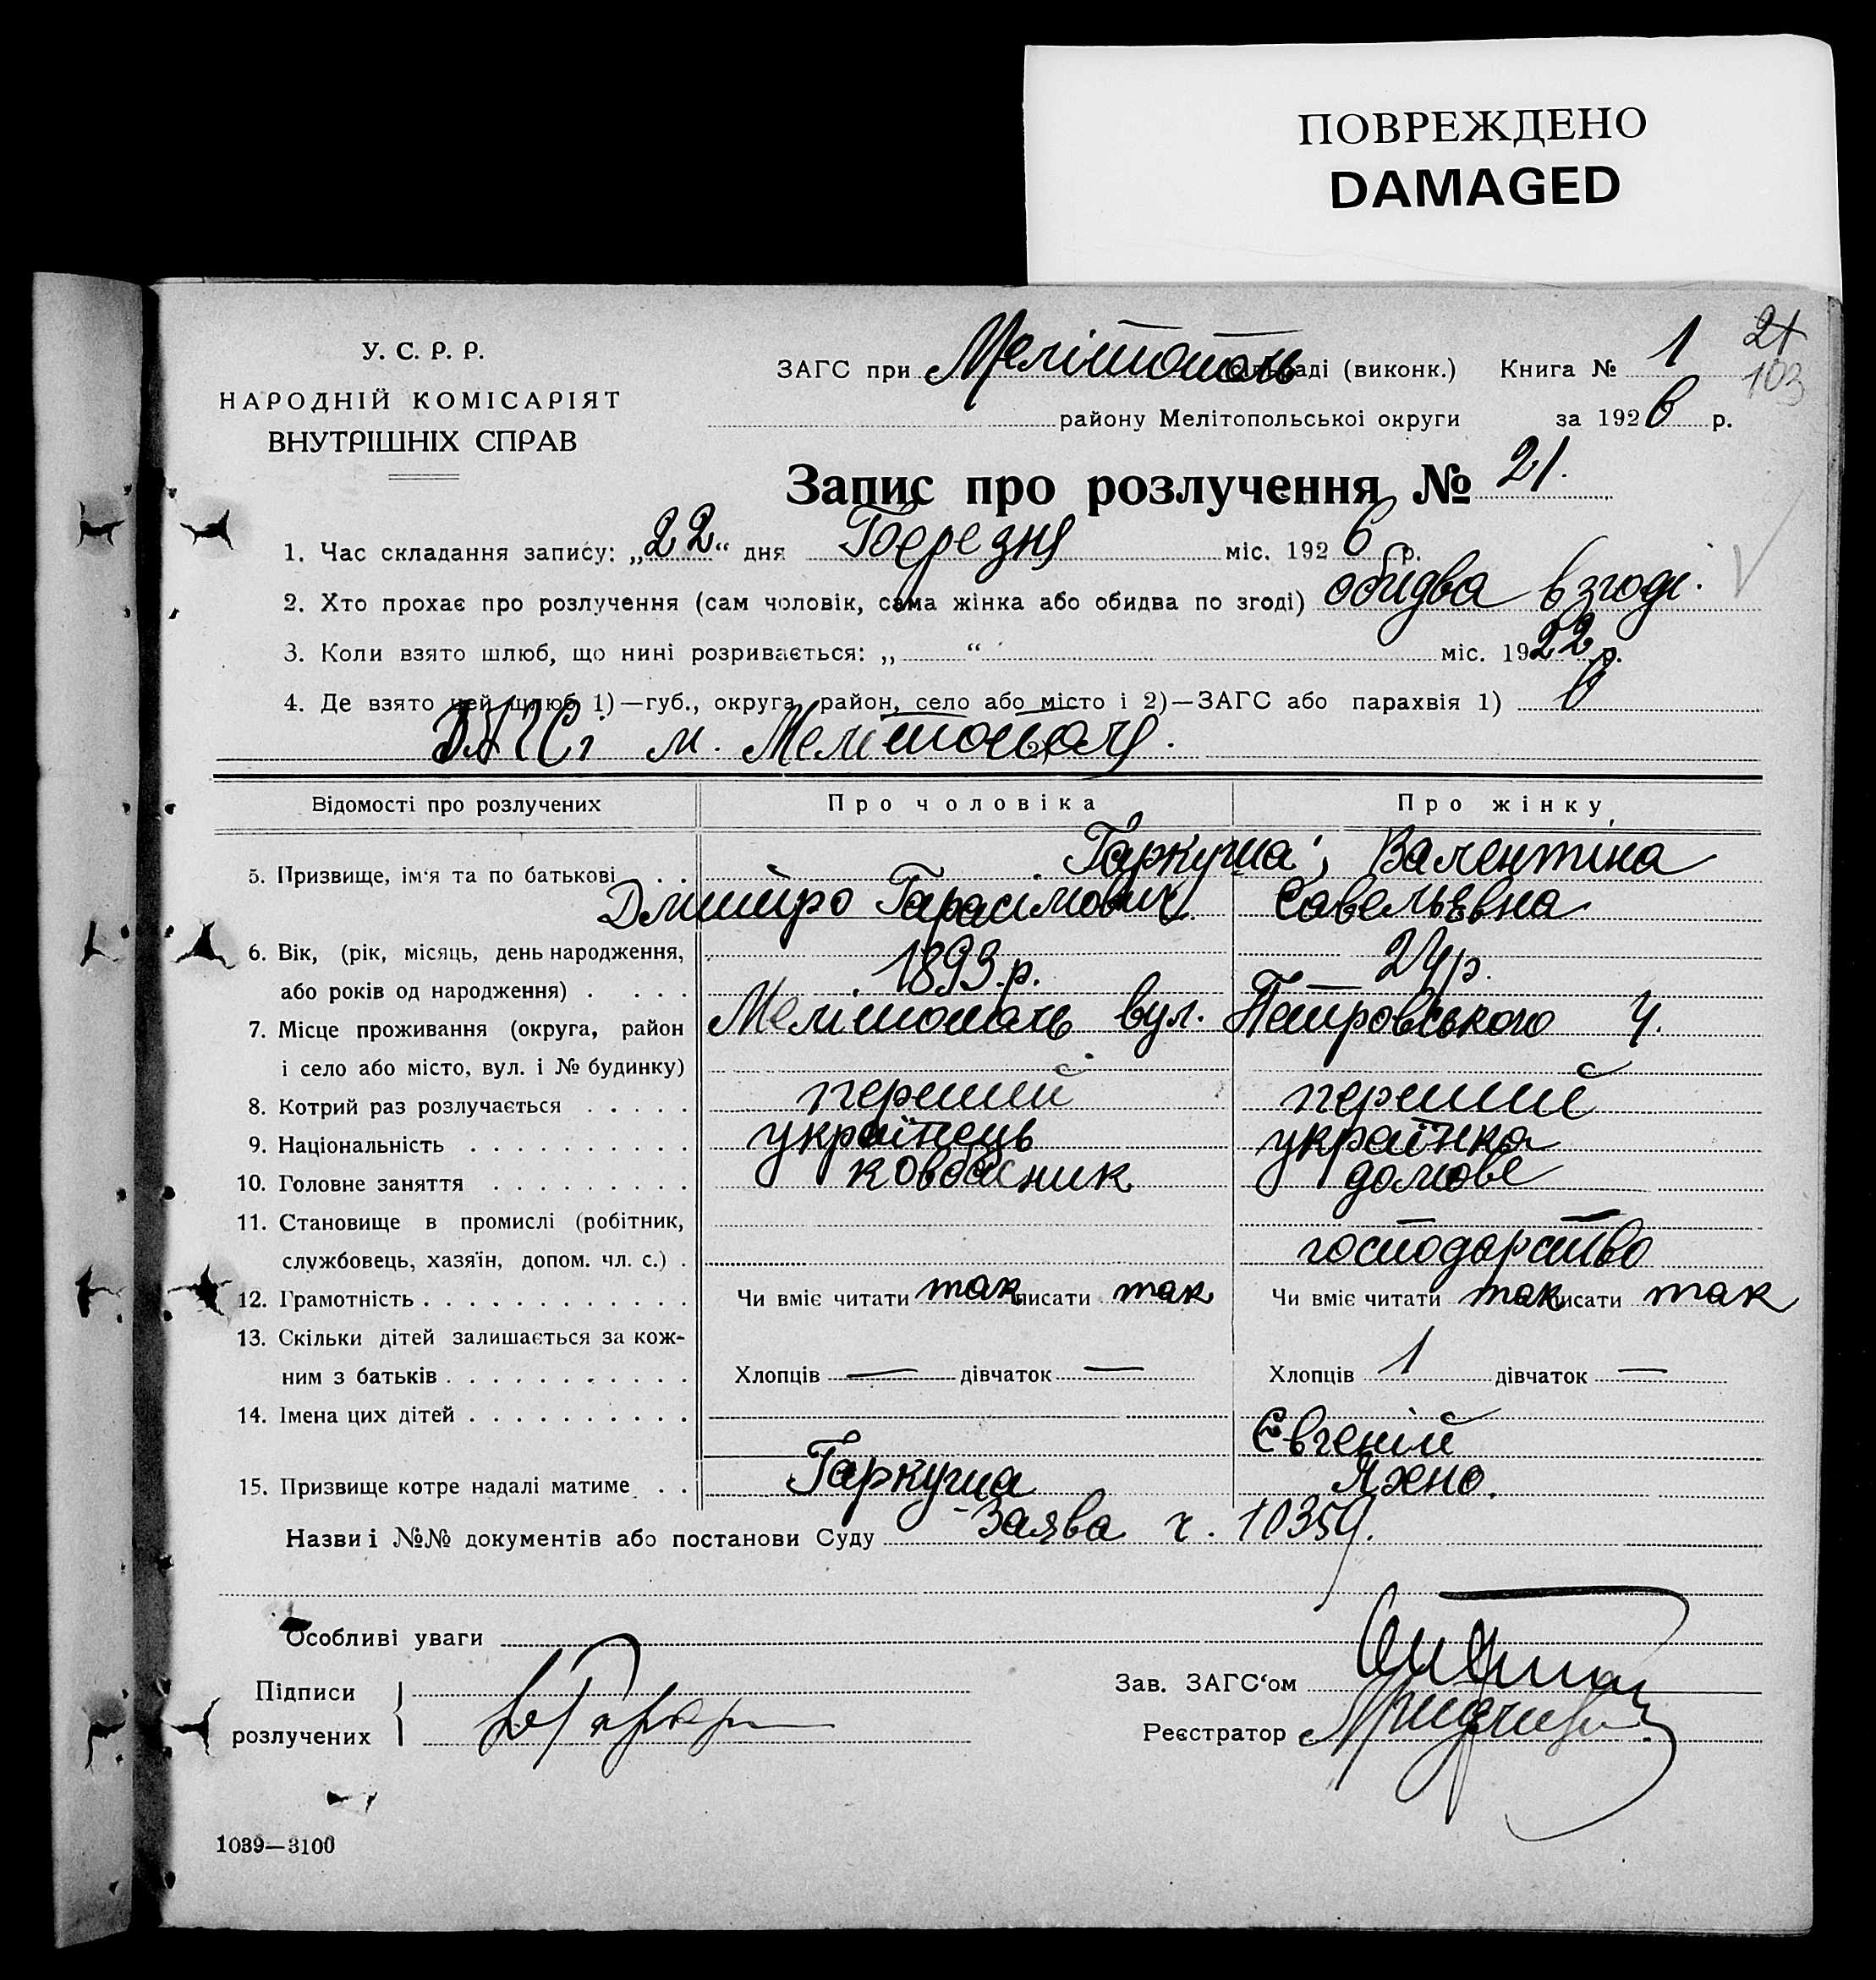 ПОВРЕЖДЕНО
DAMAGED
У. С. Р. Р.
НАРОДНІЙ КОМІСАРІЯТ
ВНУТРІШНІХ СПРАВ
ЗАГС при Мелітополь сільраді (виконк.) Книга № 1
21
103
району Мелітопольської округи за 1926 р.
Запис про розлучення № 21.
1. Час складання запису: „22“ дня Березня міс. 1926 р.
2. Хто прохає про розлучення (сам чоловік, сама жінка або обидва по згоді) обидва в згоді.
3. Коли взято шлюб, що нині розривається: „ “ міс. 1922 р.
4. Де взято цей шлюб 1)—губ., округа, район, село або місто і 2)—ЗАГС або парахвія 1) в
ЗАГСі м. Мелітополя.
Відомості про розлучених Про чоловіка Про жінку
5. Призвище, ім'я та по батькові . . Гаркуша; Валентина
Дмитро Гарасімович Савельєвна
6. Вік, (рік, місяць, день народження, 1893 р. 24 р.
або років од народження) . . . .
7. Місце проживання (округа, район Мелітополь вул. Петровського 4.
і село або місто, вул. і № будинку)
8. Котрий раз розлучається . . . . . перший перший
9. Національність . . . . . . . . . . українець українка
10. Головне заняття . . . . . . . . . ковбасник домове
11. Становище в промислі (робітник,
службовець, хазяїн, допом. чл. с.) . господарство
12. Грамотність . . . . . . . . . . . . Чи вміє читати так писати так Чи вміє читати так писати так
13. Скільки дітей залишається за кож-
ним з батьків . . . . . . . . . . . Хлопців — дівчаток — Хлопців 1 дівчаток —
14. Імена цих дітей . . . . . . . . . .
Євгеній
15. Призвище котре надалі матиме . . Гаркуша Яхно.
Назви і №№ документів або постанови Суду Заява ч. 10359.
Особливі уваги
Підписи
розлучених
Зав. ЗАГС'ом
Реєстратор
1039—3100